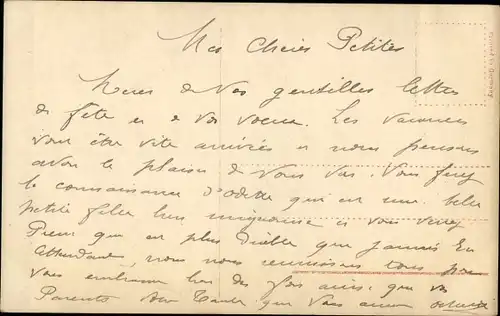 Mes Chères Petites
Merci de Vos gentilles lettres
de fête et de vos voeux. Les vacances
vont être vite arrivées et nous pensons
avoir le plaisir de Vous voir. Vous ferez
la connaissance d'Odette qui est une belle
petite fille bien mignonne et vous verrez
Pierre qui est plus Diable que jamais En
attendant, nous nous réunissons tous pour
Vous embrasser bien des fois ainsi que vos
Parents Tante qui Vous aime
Printed in Germany